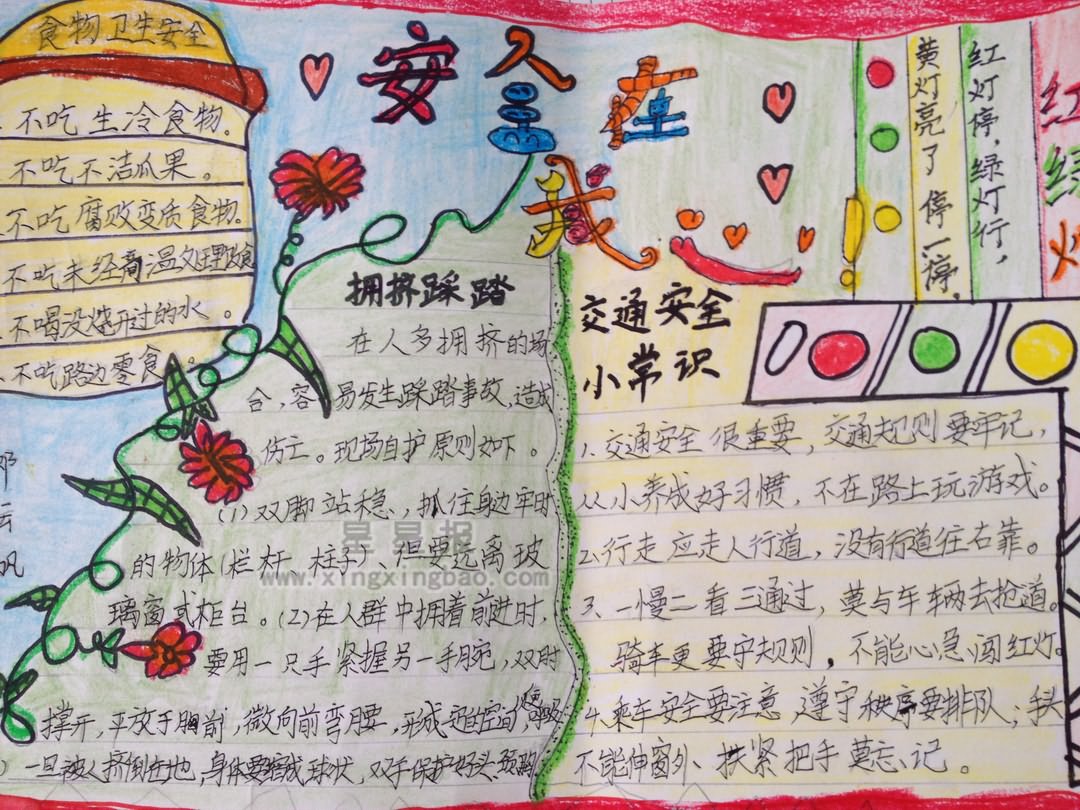 食物卫生安全
不吃生冷食物。
不吃不洁瓜果。
不吃腐败变质食物。
不吃未经高温处理
不喝没烧开过的水。
不吃路边零食。
安全在我
黄灯亮了停一停，
红灯停，绿灯行，
红
绿
灯
拥挤踩踏
在人多拥挤的场
合，容易发生踩踏事故，造成
伤亡。现场自护原则如下。
(1)双脚站稳、抓住身边牢时
的物体(栏杆、柱子)、但要远离玻
璃窗或柜台。(2)在人群中拥着前进时，
要用一只手紧握另一手腕，双肘
撑开，平放于胸前，微向前弯腰，形成
一旦被人挤倒在地，身体要缩成球状，双手保护好头
云
帆
交通安全
小常识
1.交通安全很重要，交通规则要牢记，
从小养成好习惯，不在路上玩游戏。
2.行走应走人行道，没有行道往右靠。
3、一慢二看三通过，莫与车辆去抢道。
骑车更要守规则，不能心急闯红灯。
4.乘车安全要注意，遵守秩序要排队；手头
不能伸窗外、扶紧把手莫忘记。
星星报
www.xingxingbao.com